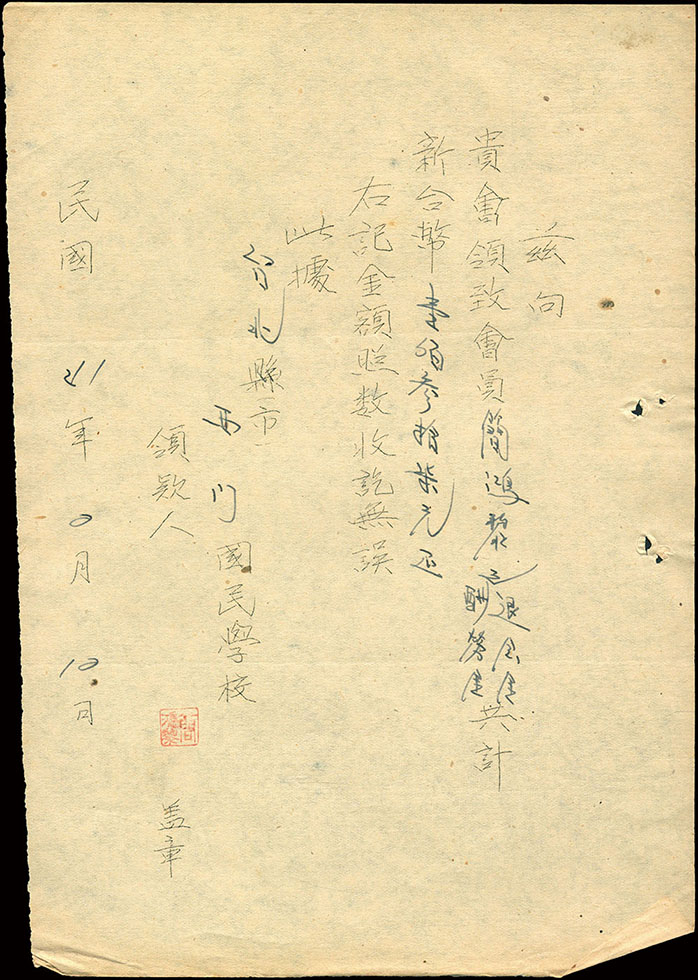 茲向
貴會領致會員簡鴻 之退 金
酬勞金共計
新台幣壹佰參拾柒元正
右記金額照数收訖無誤
此據
台北縣市
西门國民學校
領欵人
盖章
民國 41年 月 10日